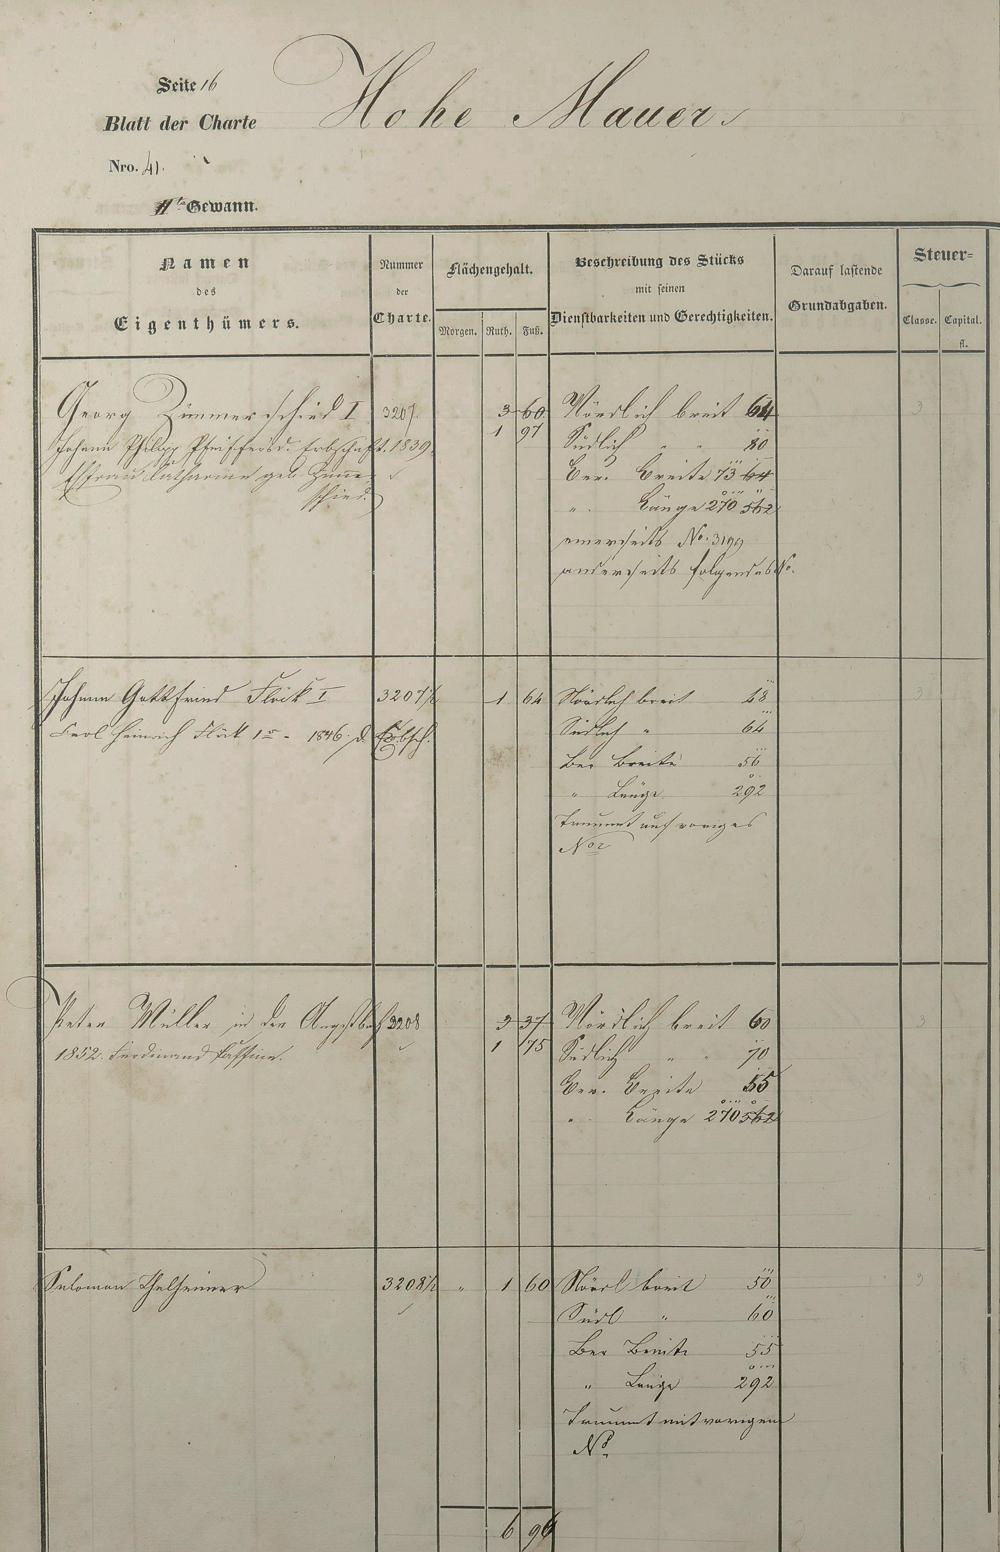 Seite 16
Hohe Mauer.
Blatt der Charte
Nro. 41.
IIte Gewann.
Namen
des
Eigenthümers.
Nummer
der
Charte.
Flächengehalt.
Morgen. Ruth. Fuß.
Beschreibung des Stücks
mit seinen
Dienstbarkeiten und Gerechtigkeiten.
Darauf lastende
Grundabgaben.
Steuer=
Classe. Capital.
fl.
Georg Zimmerschied I 3207. 3 60 Nördlich breit 64
1 97 Südlich " " 80
Johann Philipp Pfeiffer d. Erbschaft. 1839.
Ehefrau Catharine geb. Zimmer-
schied.
Ber. Breite 73 64
" Länge 270 562
einerseits No. 3199
anderseits folgendes No.
Johann Gottfried Flöck I 3207½ 1 64 Nördlich breit 48
Carl Heinrich Flöck 1r - 1846. d. Erbsch. Südlich " 64
Ber Breite 56
" Länge 292
Trennt auf voriges
No
Peter Müller in der 3208 3 37 Nördlich breit 60
1852. Ferdinand 1 75 Südlich " " 70
Ber. Breite 55
" Länge 270 562
Salomon Thalheimer 3208½ " 1 60 Nördl breit 50
Südl " 60
Ber Breite 55
" Länge 292
Trennt mit vorigem
No.
6 96